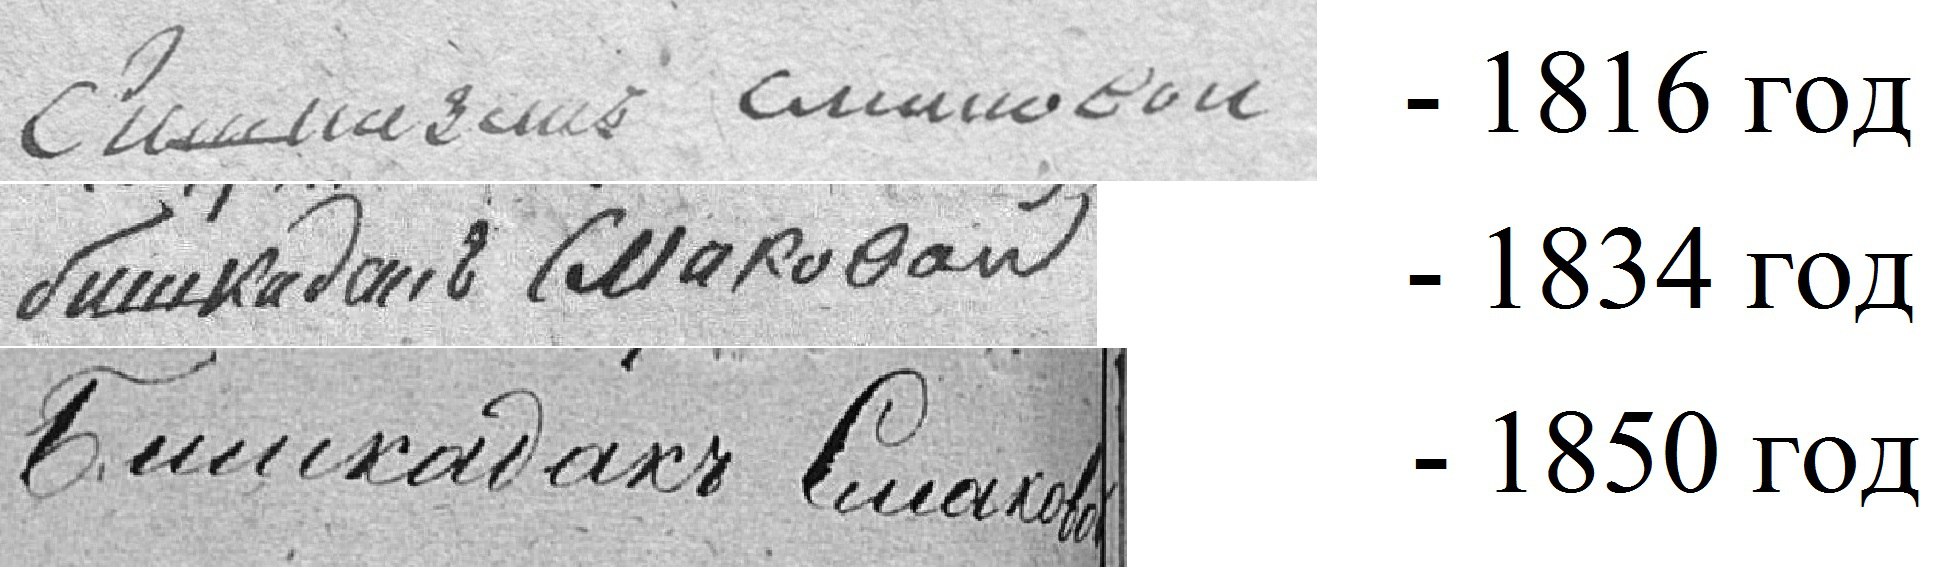 смаковои - 1816 год
бишкадакъ Смаковой - 1834 год
Бишкадакъ Смаково - 1850 год